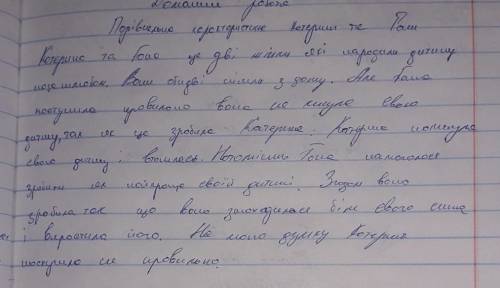 Домашня робота
Порівняльна характеристика Катерини та Гани
Катерина та Гана це дві жінки які народили дитину
поза шлюбом. Вони обидві пішли з дому. Але Гана
поступила правильно вона не кинула свою
дитину, так як це зробила Катерина. Катерина покинула
свою дитину і втопилась. Натомість Гана намагалася
зробити як найкраще своїй дитині. Згодом вона
зробила так що вона знаходилася біля свого сина
і виростила його. На мою думку Катерина
поступила не правильно.